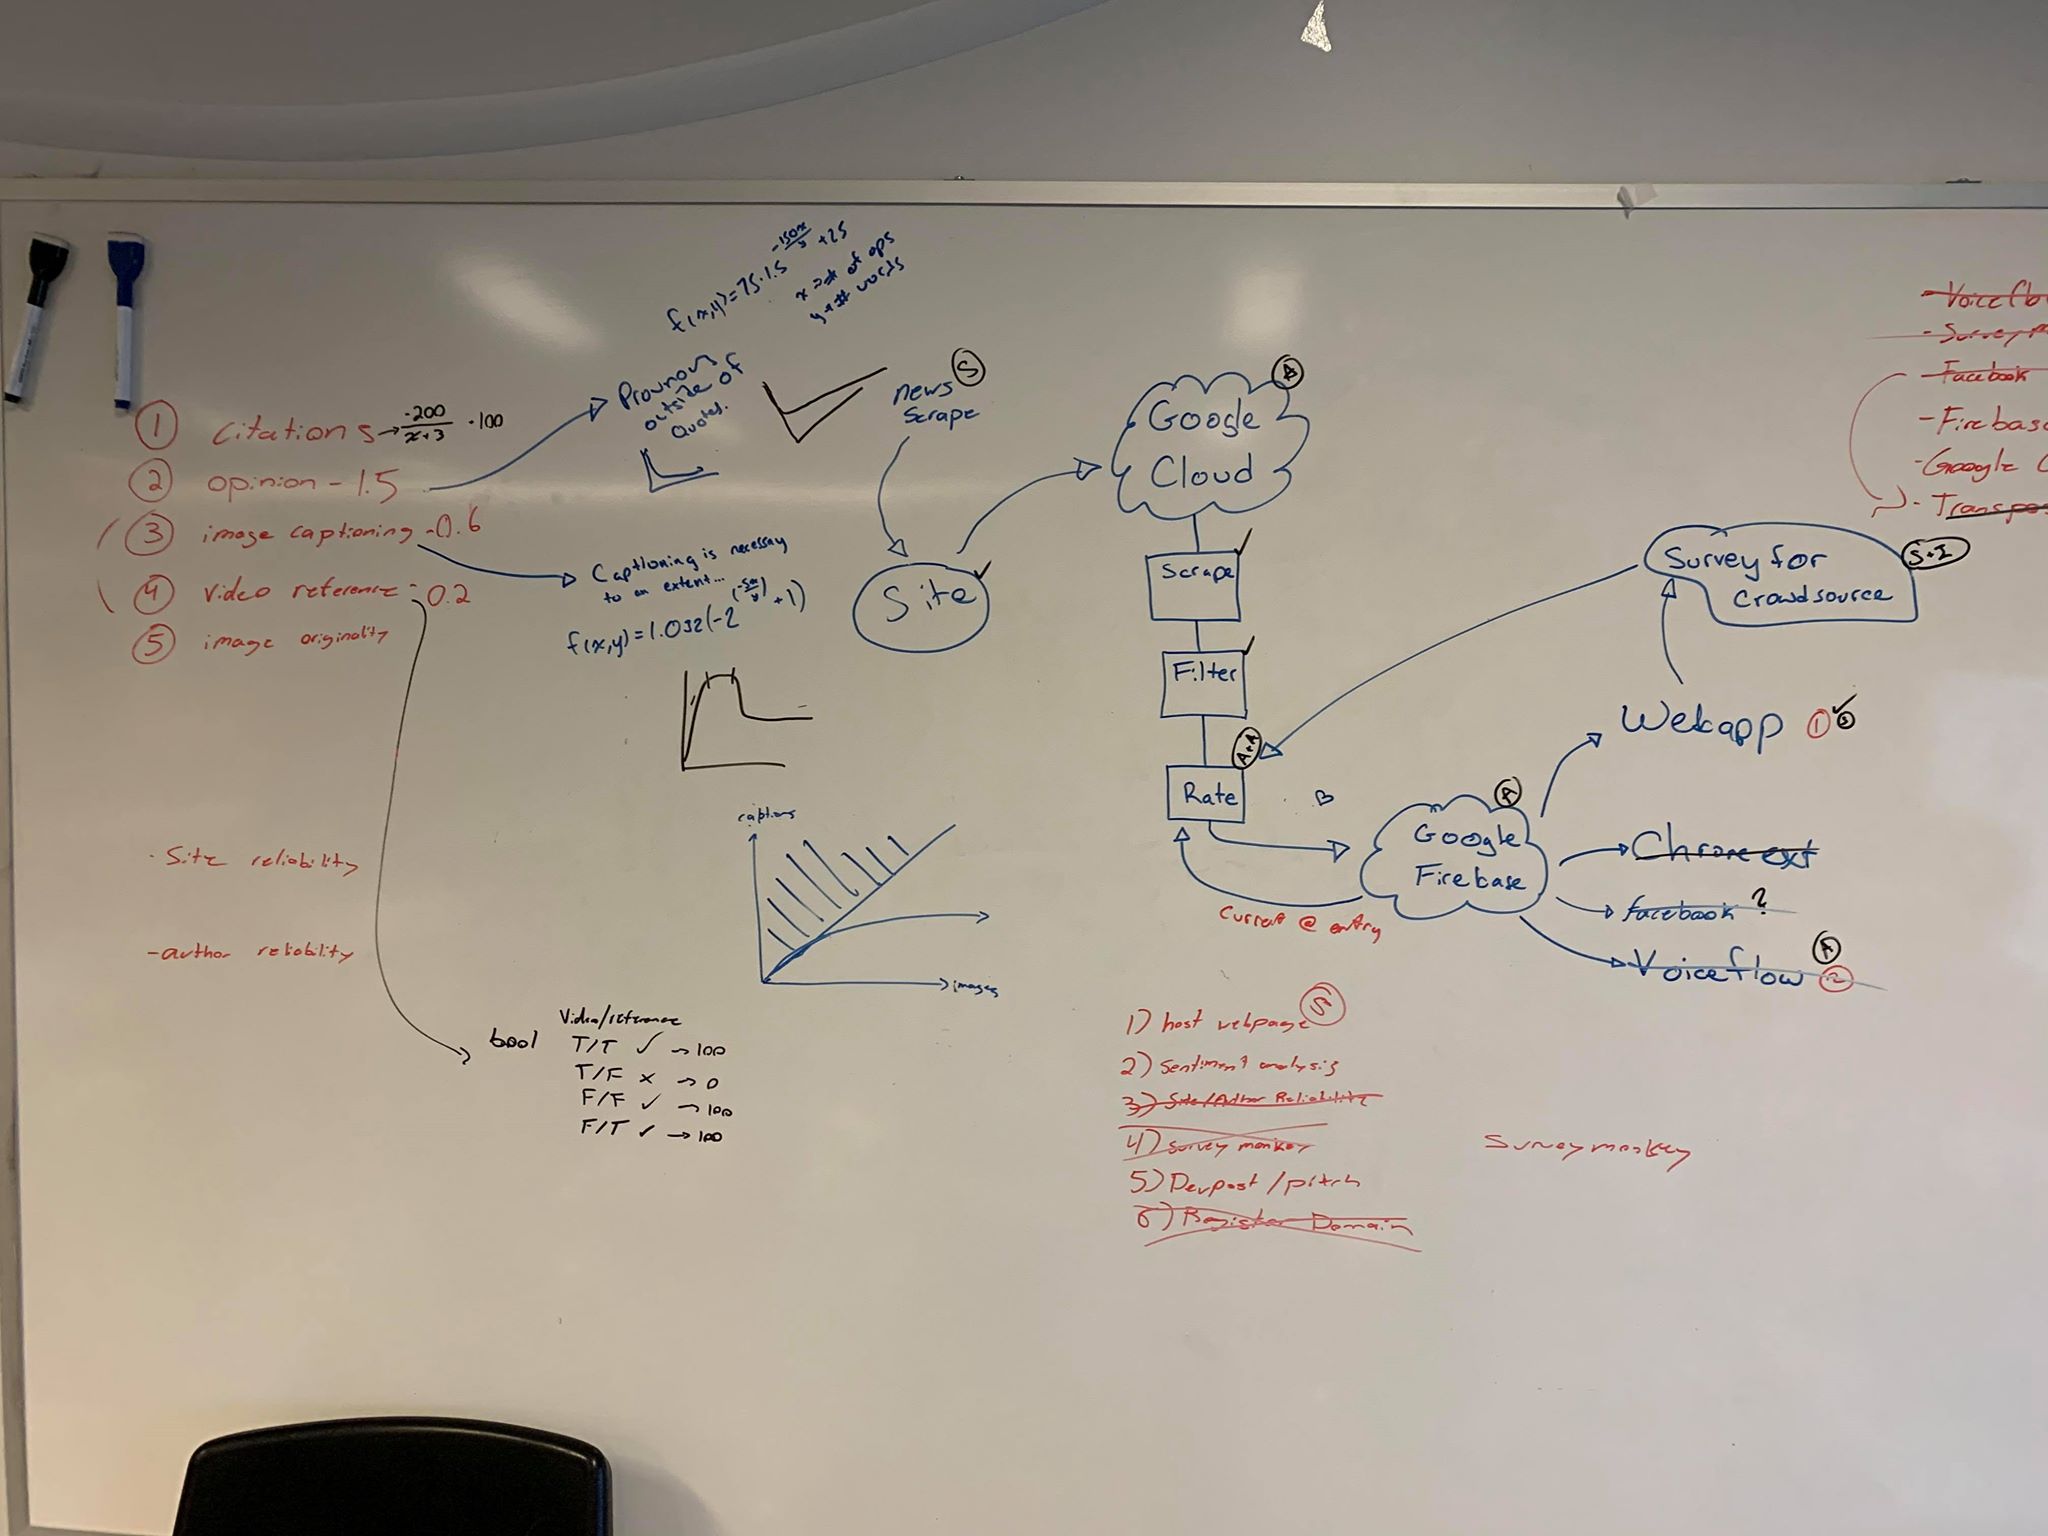 f(x,y)=75·1.5^(-150x/y)+25
x => # of ops
y => # words
Pronouns
outside of
Quotes.
① Citations → -200/(x+3) ·100
② opinion - 1.5
③ image captioning - 0.6
④ Video reference - 0.2
⑤ image originality
Captioning is necessay
to an extent...
f(x,y)=1.032(-2^(-5x/y)+1)
- Site reliability
- author reliability
captions
images
bool
Video/reference
T/T ✓ → 100
T/F x → 0
F/F ✓ → 100
F/T ✓ → 100
news S
Scrape
Site ✓
Google
Cloud
Scrape ✓
Filter ✓
A+A
Rate
Current @ entry
A
Google
Firebase
Survey for
Crowdsource
S+I
Webapp ① ✓
Chrome ext
facebook ?
Voiceflow A ②
1) host webpage S
2) Sentiment analysis
3) Site/Author Reliability
4) Survey monkey
5) Devpost / pitch
6) Register Domain
Surveymonkey
- Voiceflo
- Survey
- Facebook
- Firebase
- Google C
- Transpos